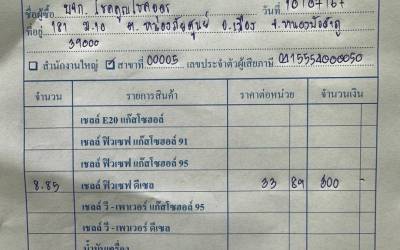 ชื่อผู้ซื้อ บจก. โชคคูณโชคถาวร วันที่ 10/07/67
ที่อยู่ 181 ม.10 ต. หนองภัยศูนย์ อ.เมือง จ.หนองบัวลำภู
39000
สำนักงานใหญ่ ☑ สาขาที่ 00005 เลขประจำตัวผู้เสียภาษี 0415554000050
จำนวน รายการสินค้า ราคาต่อหน่วย จำนวนเงิน
เชลล์ E20 แก๊สโซฮอล์
เชลล์ ฟิวเซฟ แก๊สโซฮอล์ 91
เชลล์ ฟิวเซฟ แก๊สโซฮอล์ 95
8.85 เชลล์ ฟิวเซฟ ดีเซล 33 89 300 -
เชลล์ วี - เพาเวอร์ แก๊สโซฮอล์ 95
เชลล์ วี - เพาเวอร์ ดีเซล
น้ำมันเครื่อง